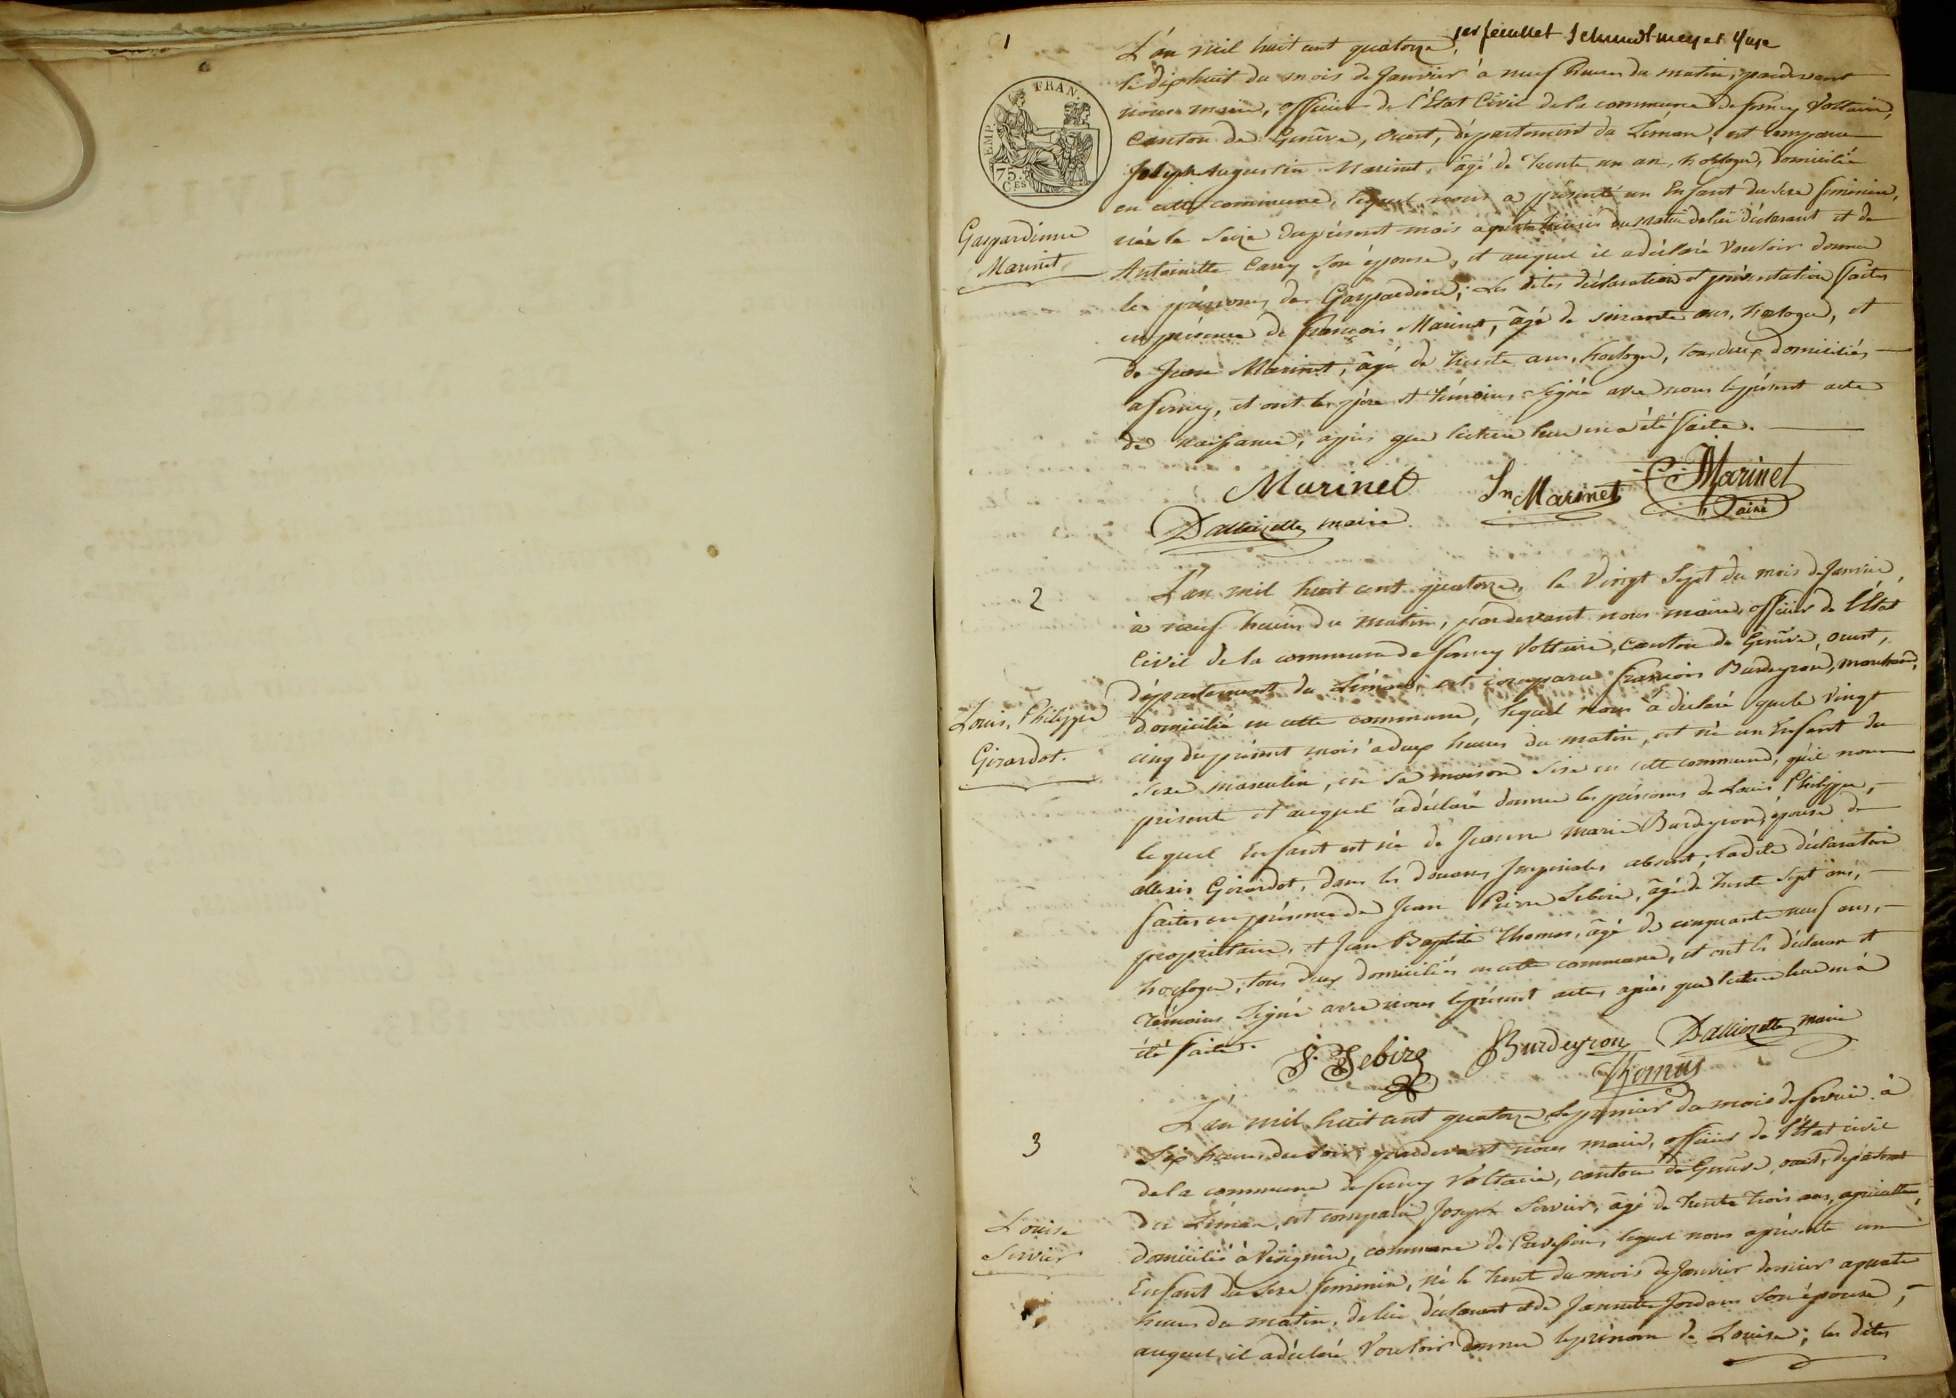 1
1er feuillet Schmidtmeyer Juge
L'an mil huit cent quatorze,
le dixhuit du mois de Janvier à neuf heures du matin, pardevant
nous maire, officier de l'Etat Civil de la commune de ferney Voltaire,
Canton de Genève, Ouest, département du Léman, est comparu
Joseph Augustin Marinet, âgé de trente un an, horloger, domicilié
en cette commune, lequel nous a présenté un Enfant du sexe féminin,
FRAN.
EMP.
75.
CES
Gaspardinne
Marinet
née le Seize du présent mois à quatre heures du matin de lui déclarant et de
Antoinette Carry son épouse, et auquel il a déclaré Vouloir donner
les prénoms de Gaspardine; les dites déclaration et présentation faites
en présence de françois Marinet, âgé de soixante ans, horloger, et
de Jean Marinet, âgé de trente ans, horloger, tous deux domiciliés
a ferney, et ont les père et témoins signé avec nous le présent acte
de naissance, après que lecture leur en a été faite.
Marinet Jn Marinet Marinet
Dalloizette maire ainé
2
L'an mil huit cent quatorze, le Vingt Sept du mois de Janvier,
à neuf heures du matin, pardevant nous maire, officier de l'Etat
Civil de la commune de ferney Voltaire, Canton de Genève, ouest,
département du Léman, est comparu françois Burdeyron, marchand,
Louis, Philippe
Girardot.
domicilié en cette commune, lequel nous a déclaré que le Vingt
cinq du présent mois à deux heures du matin, est né un Enfant du
sexe masculin, en sa maison sise en cette commune, qu'il nous
présente et auquel a déclaré donner les prénoms de Louis Philippe,
lequel Enfant est né de Jeanne marie Burdeyron, épouse de
alexis Girardot, dans les douanes Imperiales, absent; ladite déclaration
faites en présence de Jean Pierre Sebire, âgé de trente sept ans,
propriétaire, et Jean Baptiste Thomas, âgé de cinquante neuf ans,
horloger, tous deux domiciliés en cette commune, et ont les déclarant et
témoins signé avec nous le présent acte, après que lecture leur en a
été faite.
Sebire Burdeyron Dalloizette maire
Thomas
3
L'an mil huit cent quatorze, le premier du mois de fevrier à
Six heures du soir, pardevant nous maire, officier de l'Etat civil
de la commune de ferney Voltaire, canton de Genève, ouest, département
du Léman, est comparu Joseph Servier, âgé de trente trois ans, agriculteur,
Louise
Servier
domicilié à Vésignin, commune de Prevessin, lequel nous a présenté un
Enfant du sexe féminin, né le trente du mois de Janvier dernier a quatre
heures du matin, de lui déclarant et de Jannette Jordan son épouse,
auquel il a déclaré Vouloir donner le prénom de Louise; les dites